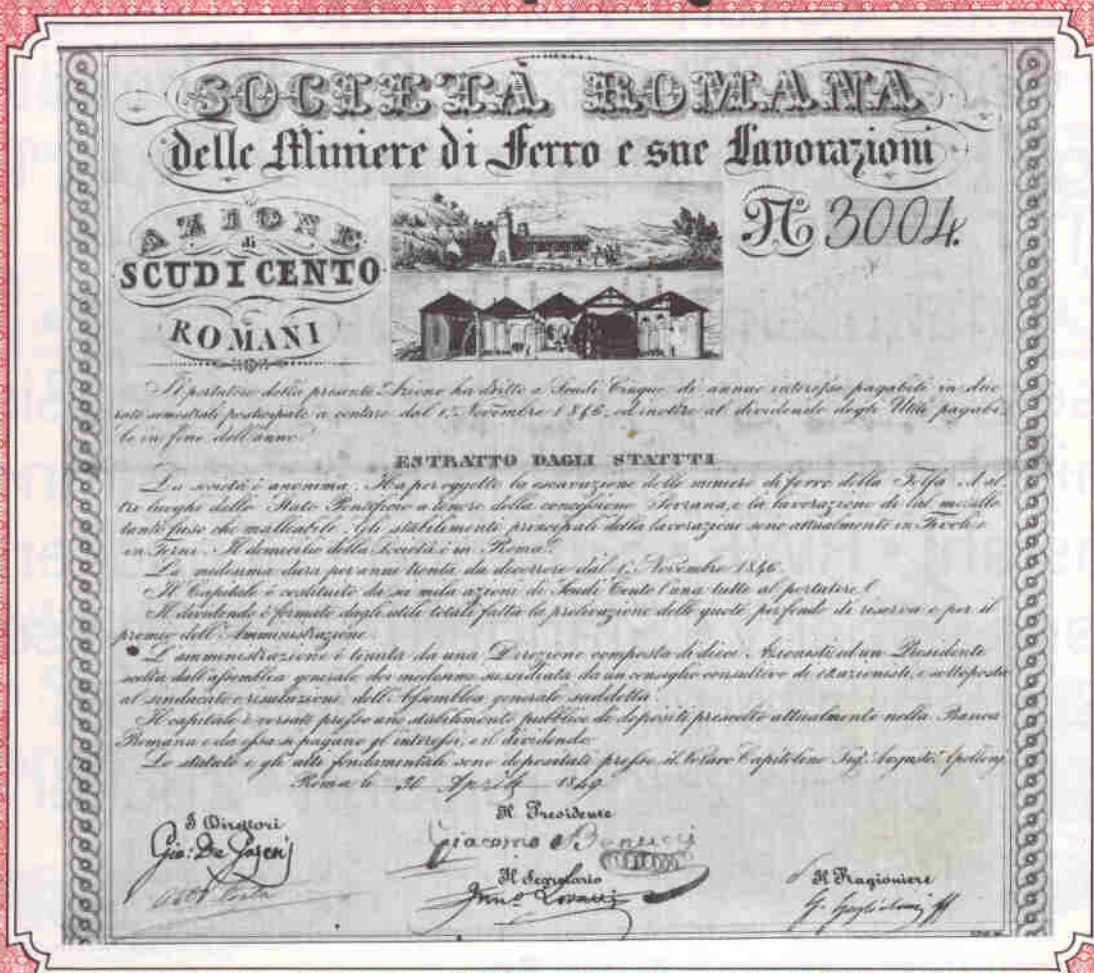 SOCIETÀ ROMANA
delle Miniere di Ferro e sue Lavorazioni
AZIONE
di
SCUDI CENTO
ROMANI
N.º 3004.
Il portatore della presente Azione ha dritto a Scudi Cinque di annuo interesse pagabili in due
rate semestrali posticipate a contare dal 1. Novembre 1846, ed inoltre al dividendo degli Utili pagabi
le in fine dell'anno.
ESTRATTO DAGLI STATUTI
La società è anonima. Ha per oggetto la escavazione delle miniere di ferro della Tolfa e al
tri luoghi dello Stato Pontificio a tenore della concessione Sovrana, e la lavorazione di tal metallo
tanto fuso che malleabile. Gli stabilimenti principali della lavorazione sono attualmente in Tivoli e
in Terni. Il domicilio della Società è in Roma.
La medesima dura per anni trenta da decorrere dal 1. Novembre 1846.
Il Capitale è costituito da sei mila azioni di Scudi Cento l'una tutte al portatore.
Il dividendo è formato dagli utili totali fatta la prelevazione delle quote pel fondo di riserva e per il
premio dell'Amministrazione.
L'amministrazione è tenuta da una Direzione composta di dieci Azionisti ed un Presidente
scelta dall'assemblea generale dei medesimi sussidiata da un consiglio consultivo di azionisti, e sottoposta
al sindacato e risoluzione dell'Assemblea generale suddetta.
Il capitale è versato presso uno stabilimento pubblico di depositi prescelto attualmente nella Banca
Romana e da essa si pagano gl'interessi, e il dividendo.
Lo statuto e gli atti fondamentali sono depositati presso il Notaro Capitolino Sig. Augusto Apolloni
Roma li 30 Aprile 1849
I Direttori
Il Presidente
Giacomo Benucci
Il Segretario
Il Ragioniere